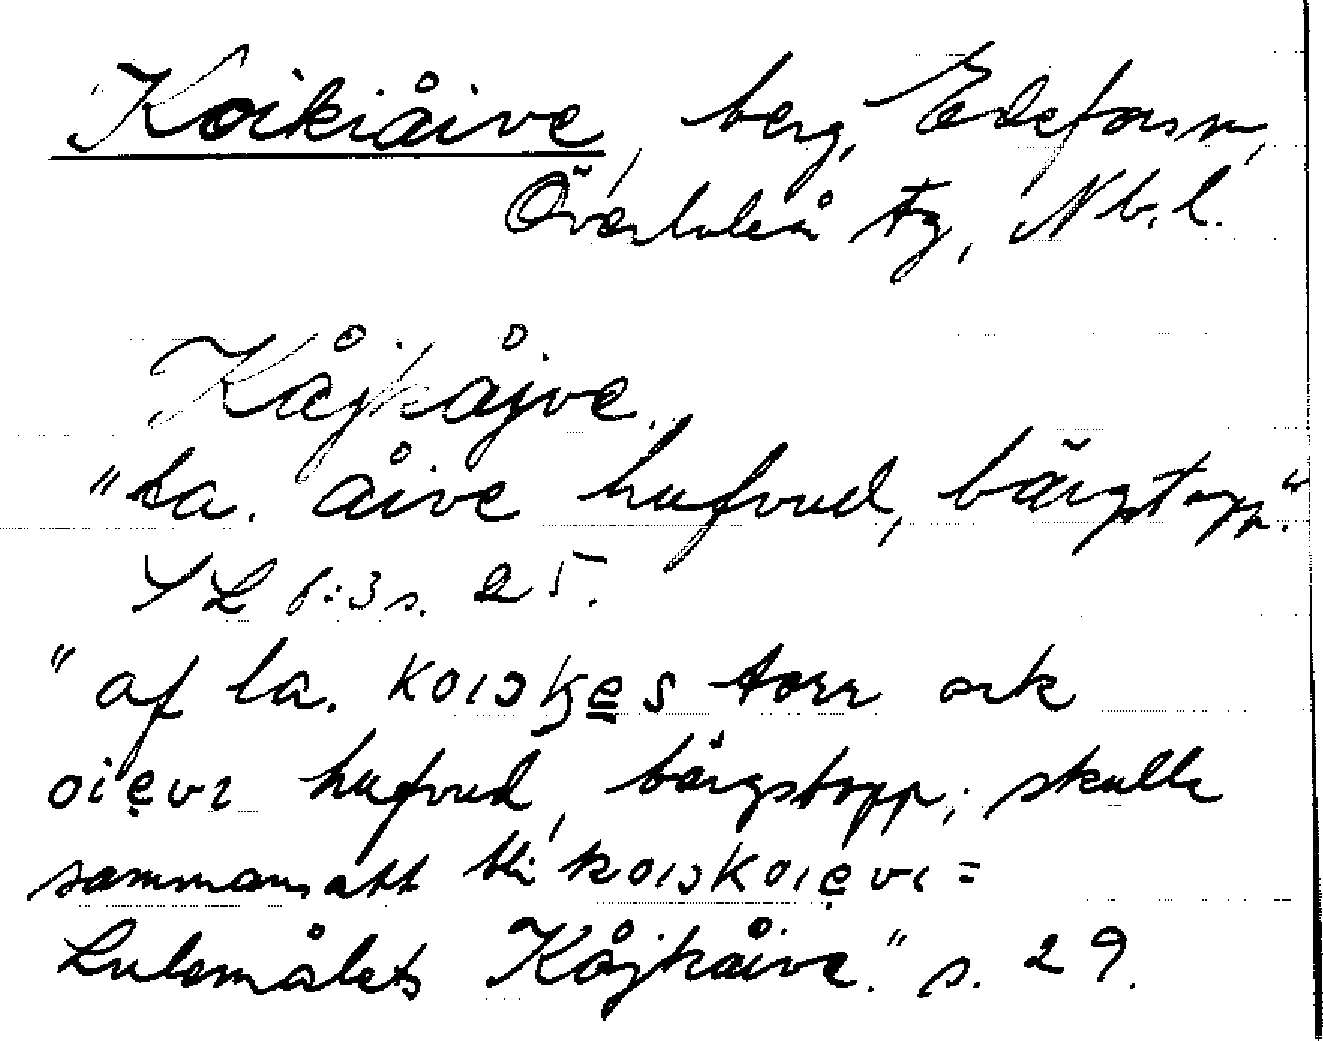 Koikiåive, berg, Edefors sn,
Överluleå tg, Nb. l.
Kåjkåjve.
"La. åive hufvud, bärgstopp."
SL 6:3 s. 25.
"af la. torr ock
hufvud, bärgstopp; skulle
sammansatt bli =
Lulemålets Kåjkåive." s. 29.